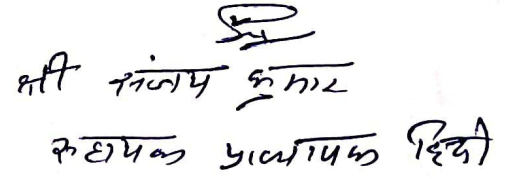 श्री संजय कुमार
सहायक प्राध्यापक हिंदी